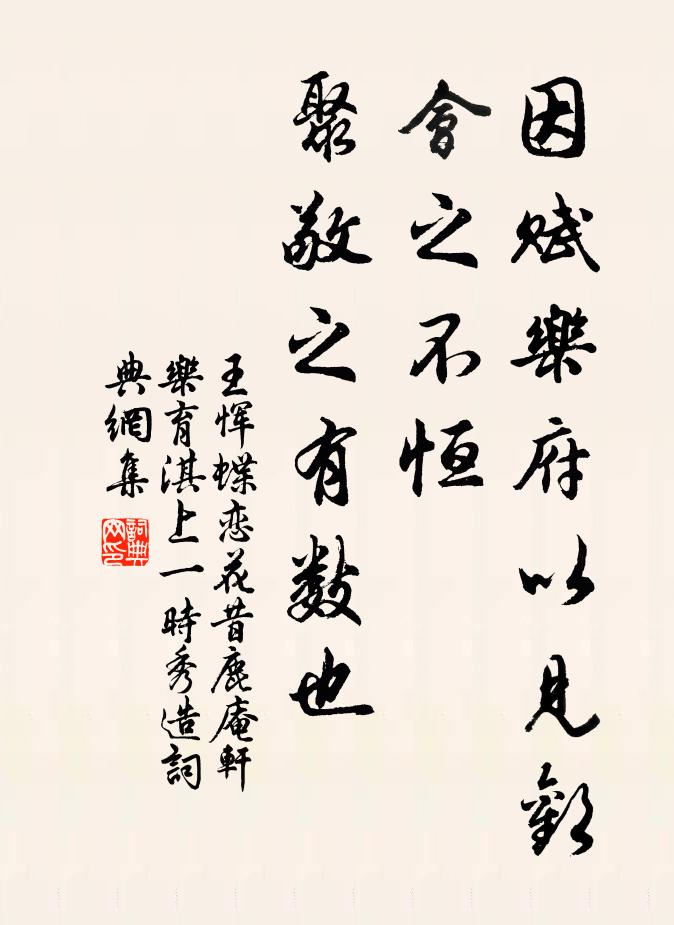 因賦樂府以見歡
會之不恒
聚散之有數也
王惲蝶恋花昔鹿庵軒
樂育淇上一時秀造詞
典網集
詞典網印